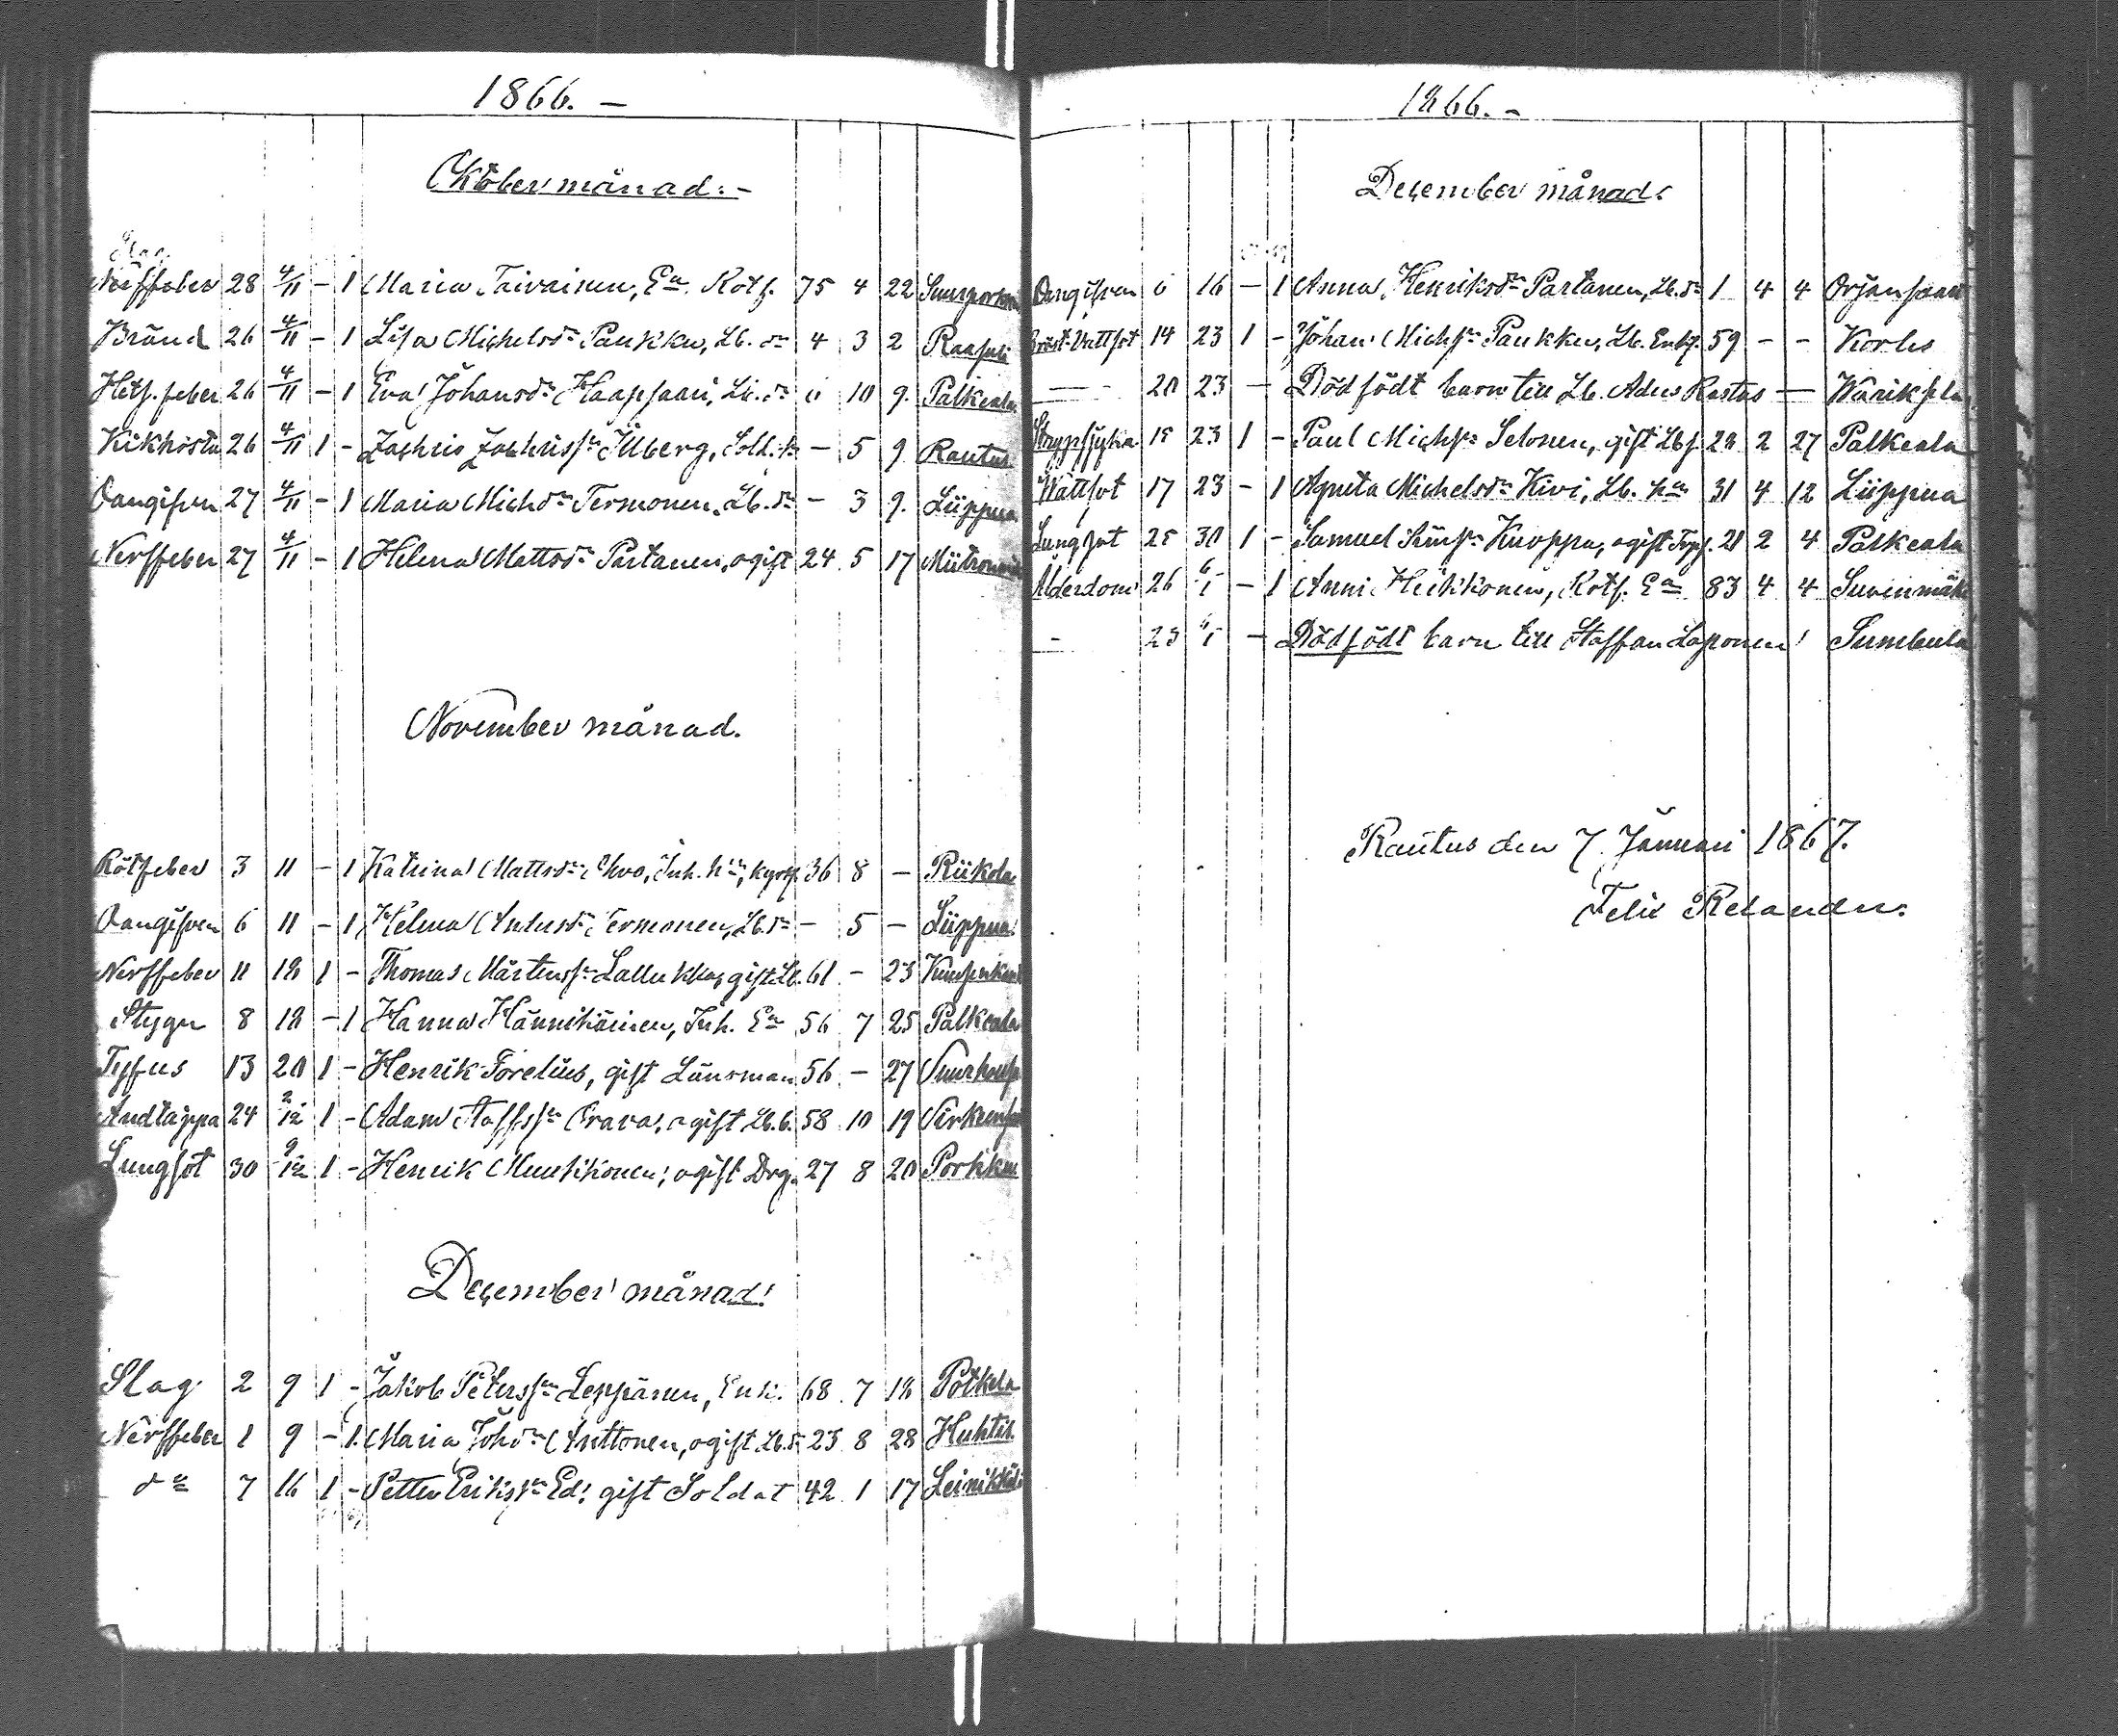 1866. –
Oktober månad. –
Slag
Nerffeber 28 4/11 – 1 Maria Taivainen, Ea Rotf. 75 4 22
Bränd 26 4/11 – 1 Lisa Michelsdr Paukku, Lb. dr 4 3 2 Raasuli
Hets. feber 26 4/11 – 1 Eva Johansdr Haapsaari, Lb. dr 0 10 9 Palkeala
Kikhosta 26 4/11 1 – Zachris Zachrissn Illberg, Sold. sn – 5 9 Rautus
Oangifven 27 4/11 – 1 Maria Michdr Termonen, Lb. dr – 3 9 Liippua
Nerffeber 27 4/11 – 1 Helena Mattsdr Partanen, ogift 24 5 17
November månad.
Rötfeber 3 11 – 1 Katrina Mattsdr Inh. hu, 36 8 – Riikola
Oangifven 6 11 – 1 Helena Termonen, Lb. dr – 5 – Liippua
Nerffeber 11 18 1 – Thomas Mårtenssn Lallukka, gift Lb. 61 – 23
Stygn 8 18 – 1 Hanna Hännikäinen, Inh. Ea 56 7 25 Palkeala
Tyfus 13 20 1 – Henrik Forelius, gift Länsman 56 – 27
Andtäppa 24 2/12 1 – Adam Staffssn Orava, ogift Lb. 58 10 19
Lungsot 30 9/12 1 – Henrik ogift Drg. 27 8 20 Porkku
December månad.
Slag 2 9 1 – Jakob Peterssn Leppänen, Enk. 68 7 18 Potkela
Nerffeber 1 9 – 1 Maria Johdr Anttonen, ogift Lb. dr 23 8 28 Huhtis
do 7 16 1 – Petter Erikssn Ed, gift Soldat 42 1 17
1866. –
December månad.
Oangifven 6 16 – 1 Anna Henriksdr Partanen, Lb. dr 1 4 4 Orjansaari
Bröst-Vattsot 14 23 1 – Johan Michsn Paukku, Lb. Enkl. 59 – – Korles
— 20 23 — Dödfödt barn till Lb. Adus Rastas —
Strypsjuka 15 23 1 – Paul Michsn Selonen, gift 2 27 Palkeala
Vattsot 17 23 – 1 Agneta Michelsdr Kivi, Lb. hu 31 4 12 Liippua
Lungsot 25 30 1 – Samuel Knoppa, ogift 21 2 4 Palkeala
Ålderdom 26 6/1 – 1 Anni Heikkonen, Rotf. Ea 83 4 4 Suvenmäki
– 23 6/1 – Dödfödt barn till Staffan Loponen Sumbula
Rautus den 7 Januari 1867.
Felix Relander.